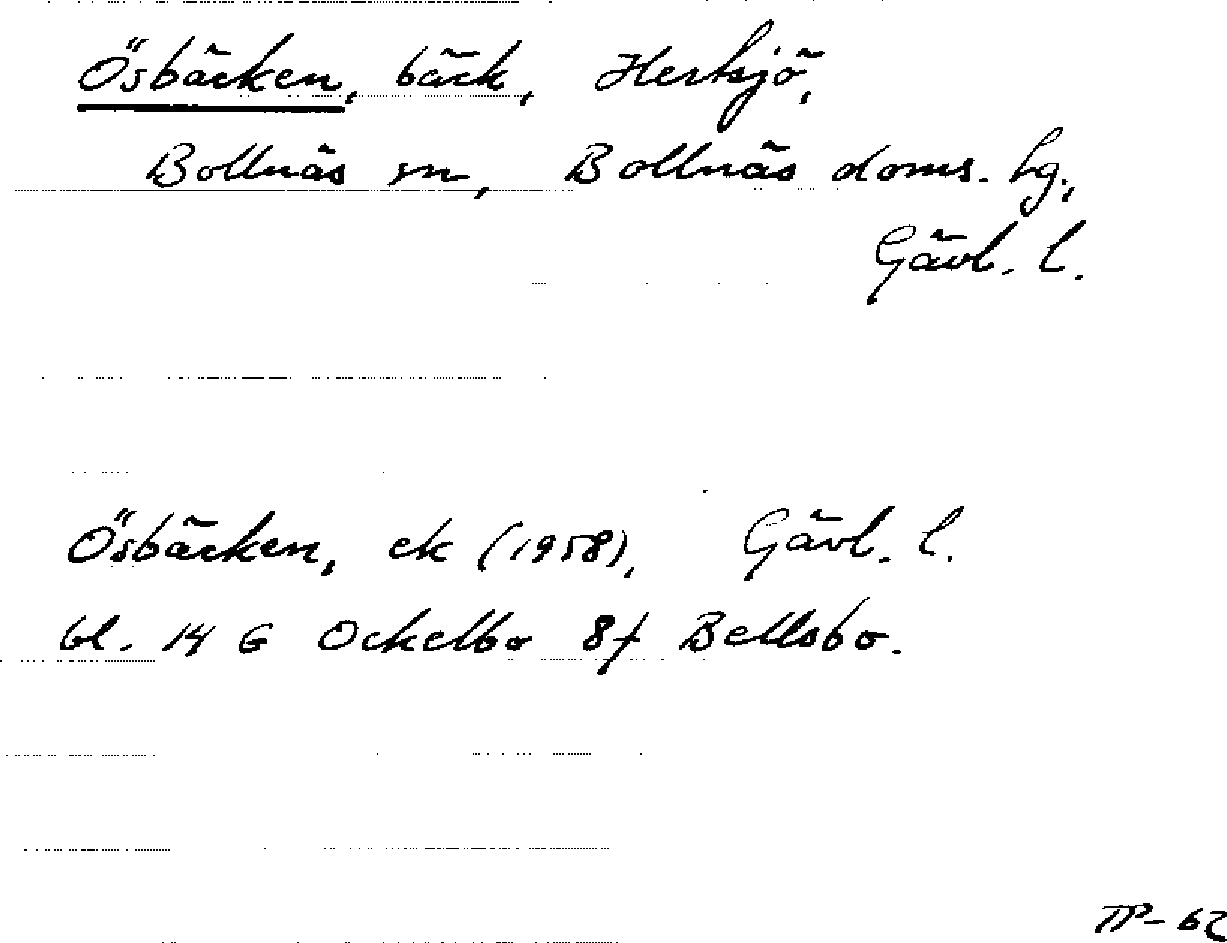 Ösbäcken, bäck, Hertsjö,
Bollnäs sn, Bollnäs doms. hg.,
Gävl. l.
Ösbäcken, ek (1958), Gävl. l.
bl. 14 G Ockelbo 8f Bellsbo.
TP-62